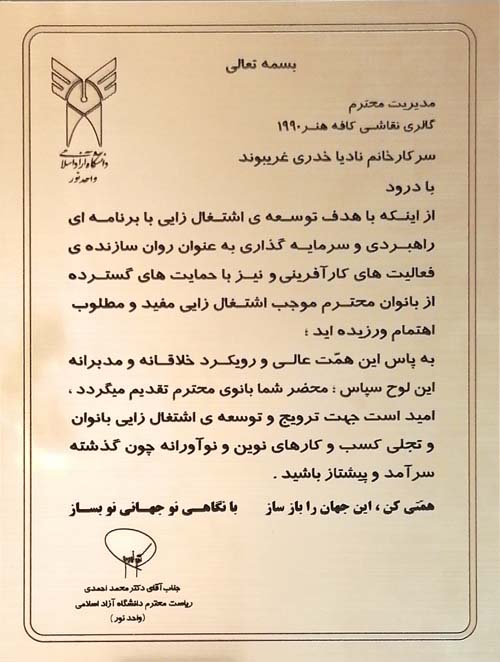 بسمه تعالی
دانشگاه آزاد اسلامی
واحد نور
مدیریت محترم
گالری نقاشی کافه هنر ۱۹۹۰
سرکار خانم نادیا خدری غریبوند
با درود
از اینکه با هدف توسعه ی اشتغال زایی با برنامه ای
راهبردی و سرمایه گذاری به عنوان روان سازنده ی
فعالیت های کارآفرینی و نیز با حمایت های گسترده
از بانوان محترم موجب اشتغال زایی مفید و مطلوب
اهتمام ورزیده اید ؛
به پاس این همّت عالی و رویکرد خلاقانه و مدبرانه
این لوح سپاس ؛ محضر شما بانوی محترم تقدیم میگردد ،
امید است جهت ترویج و توسعه ی اشتغال زایی بانوان
و تجلی کسب و کارهای نوین و نوآورانه چون گذشته
سرآمد و پیشتاز باشید .
همّتی کن ، این جهان را باز ساز با نگاهی نو جهانی نو بساز
جناب آقای دکتر محمد احمدی
ریاست محترم دانشگاه آزاد اسلامی
(واحد نور)